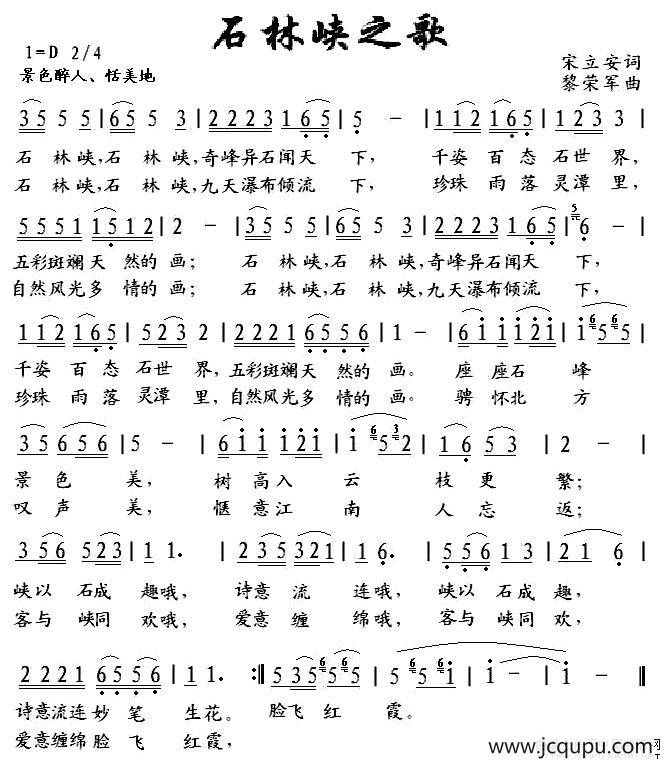 石林峡之歌
1=D 2/4
宋立安词
景色醉人、恬美地
黎荣军曲
3 5 5 5 | 6 5 5 5 | 2 2 2 2 3 1 6 5 | 5 - | 1 1 2 2 2 5 5 | 1 2 3 3 |
石 林峡,石 林峡,奇峰异石闻天 下, 千姿 百态 石世 界,
石 林峡,石 林峡,九天瀑布倾流 下, 珍珠 雨落 灵潭 里,
5 5 5 1 1 5 1 2 | 2 - | 3 5 5 5 | 6 5 5 5 | 2 2 2 3 1 6 5 | 5 6 - |
五彩斑斓天 然的 画; 石 林峡,石 林峡,奇峰异石闻天 下,
自然风光多 情的 画; 石 林峡,石 林峡,九天瀑布倾流 下,
1 1 2 1 6 5 | 5 2 2 5 | 2 2 2 1 6 5 5 6 | 1 - | 6 1 1 1 2 1 | 1 6 5 6 5 |
千姿 百态 石世 界,五彩斑斓天 然的 画。 座 座石 峰
珍珠 雨落 灵潭 里,自然风光多 情的 画。 骋 怀北 方
3 5 6 5 6 | 5 - | 6 1 1 1 2 1 | 1 6 5 3 2 | 1 6 5 3 | 2 - |
景 色 美, 树 高入 云 枝 更 繁;
叹 声 美, 惬 意江 南 人 忘 返;
3 5 6 5 2 3 | 1 1. | 2 3 5 3 2 1 | 2 2. | 5 5 6 1 3 | 2 1 6 |
峡以 石成 趣哦, 诗意 流 连哦, 峡以 石成 趣,
客与 峡同 欢哦, 爱意 缠 绵哦, 客与 峡同 欢,
2 2 2 1 6 5 5 6 | 1 1. :‖ 5 3 5 6 5 6 5 | 5 6 5 6 1 | 1 - | 1 - |
诗意流连 妙 笔 生花。 脸飞 红 霞。
爱意缠绵 脸 飞 红霞,
www.jcqupu.com